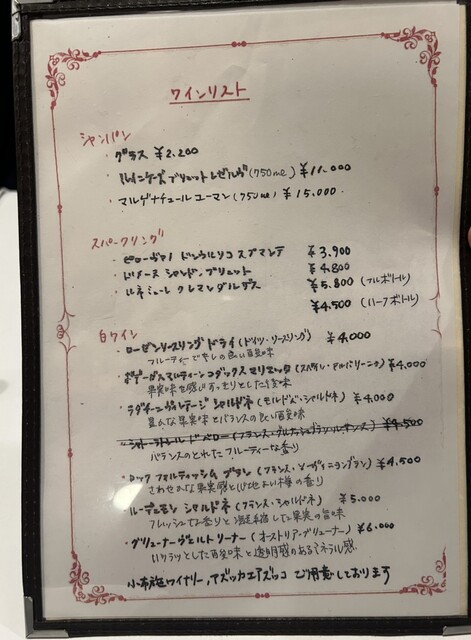 ワインリスト
シャンパン
・グラス ¥2,200
ブリュット レゼルヴ(750ml) ¥11,000
・マルゲ ナチュール ユーマン(750ml) ¥15,000
スパークリング
・ピローヴァノ ドンウルリコ スプマンテ ¥3,900
・ドメーヌ シャンドン ブリュット ¥4,800
・ルネミューレ クレマンダルザス ¥5,800 (フルボトル)
¥4,500 (ハーフボトル)
白ワイン
・ローゼンリースリング ドライ(ドイツ・リースリング) ¥4,000
フルーティーで
・ボデーガス マルティーン コダックス マリエッタ(スペイン・アルバリーニョ) ¥4,000
果実味を感じすっきりとした
・ラダチーニ ヴィンテージ シャルドネ(モルドバ・シャルドネ) ¥4,000
果実味とバランスの良い酸味
¥4,500
バランスのとれた フルーティーな香り
・ロック フォルティッシム ブラン(フランス・ソーヴィニヨンブラン) ¥4,500
さわやかな果実感と心地よい樽の香り
・ルーデュモン シャルドネ(フランス・シャルドネ) ¥5,000
フレッシュな香りと凝縮した果実の旨味
・グリューナー ヴェルトリーナー(オーストリア・グリューナー) ¥6,000
いきいきとした酸味と透明感のあるミネラル感
小布施ワイナリー, アズッカエアズッコ ご用意しております